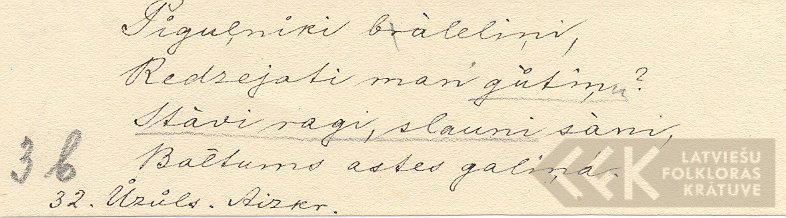 Piguļņiki bràleliņi,
Redzejati man gùtiņu?
Stàvi ragi, slauni sàni,
Bòltums astes galiņà.
3 b
32. Ùzùls. Aizkr.
LATVIEŠU
FOLKLORAS
KRĀTUVE